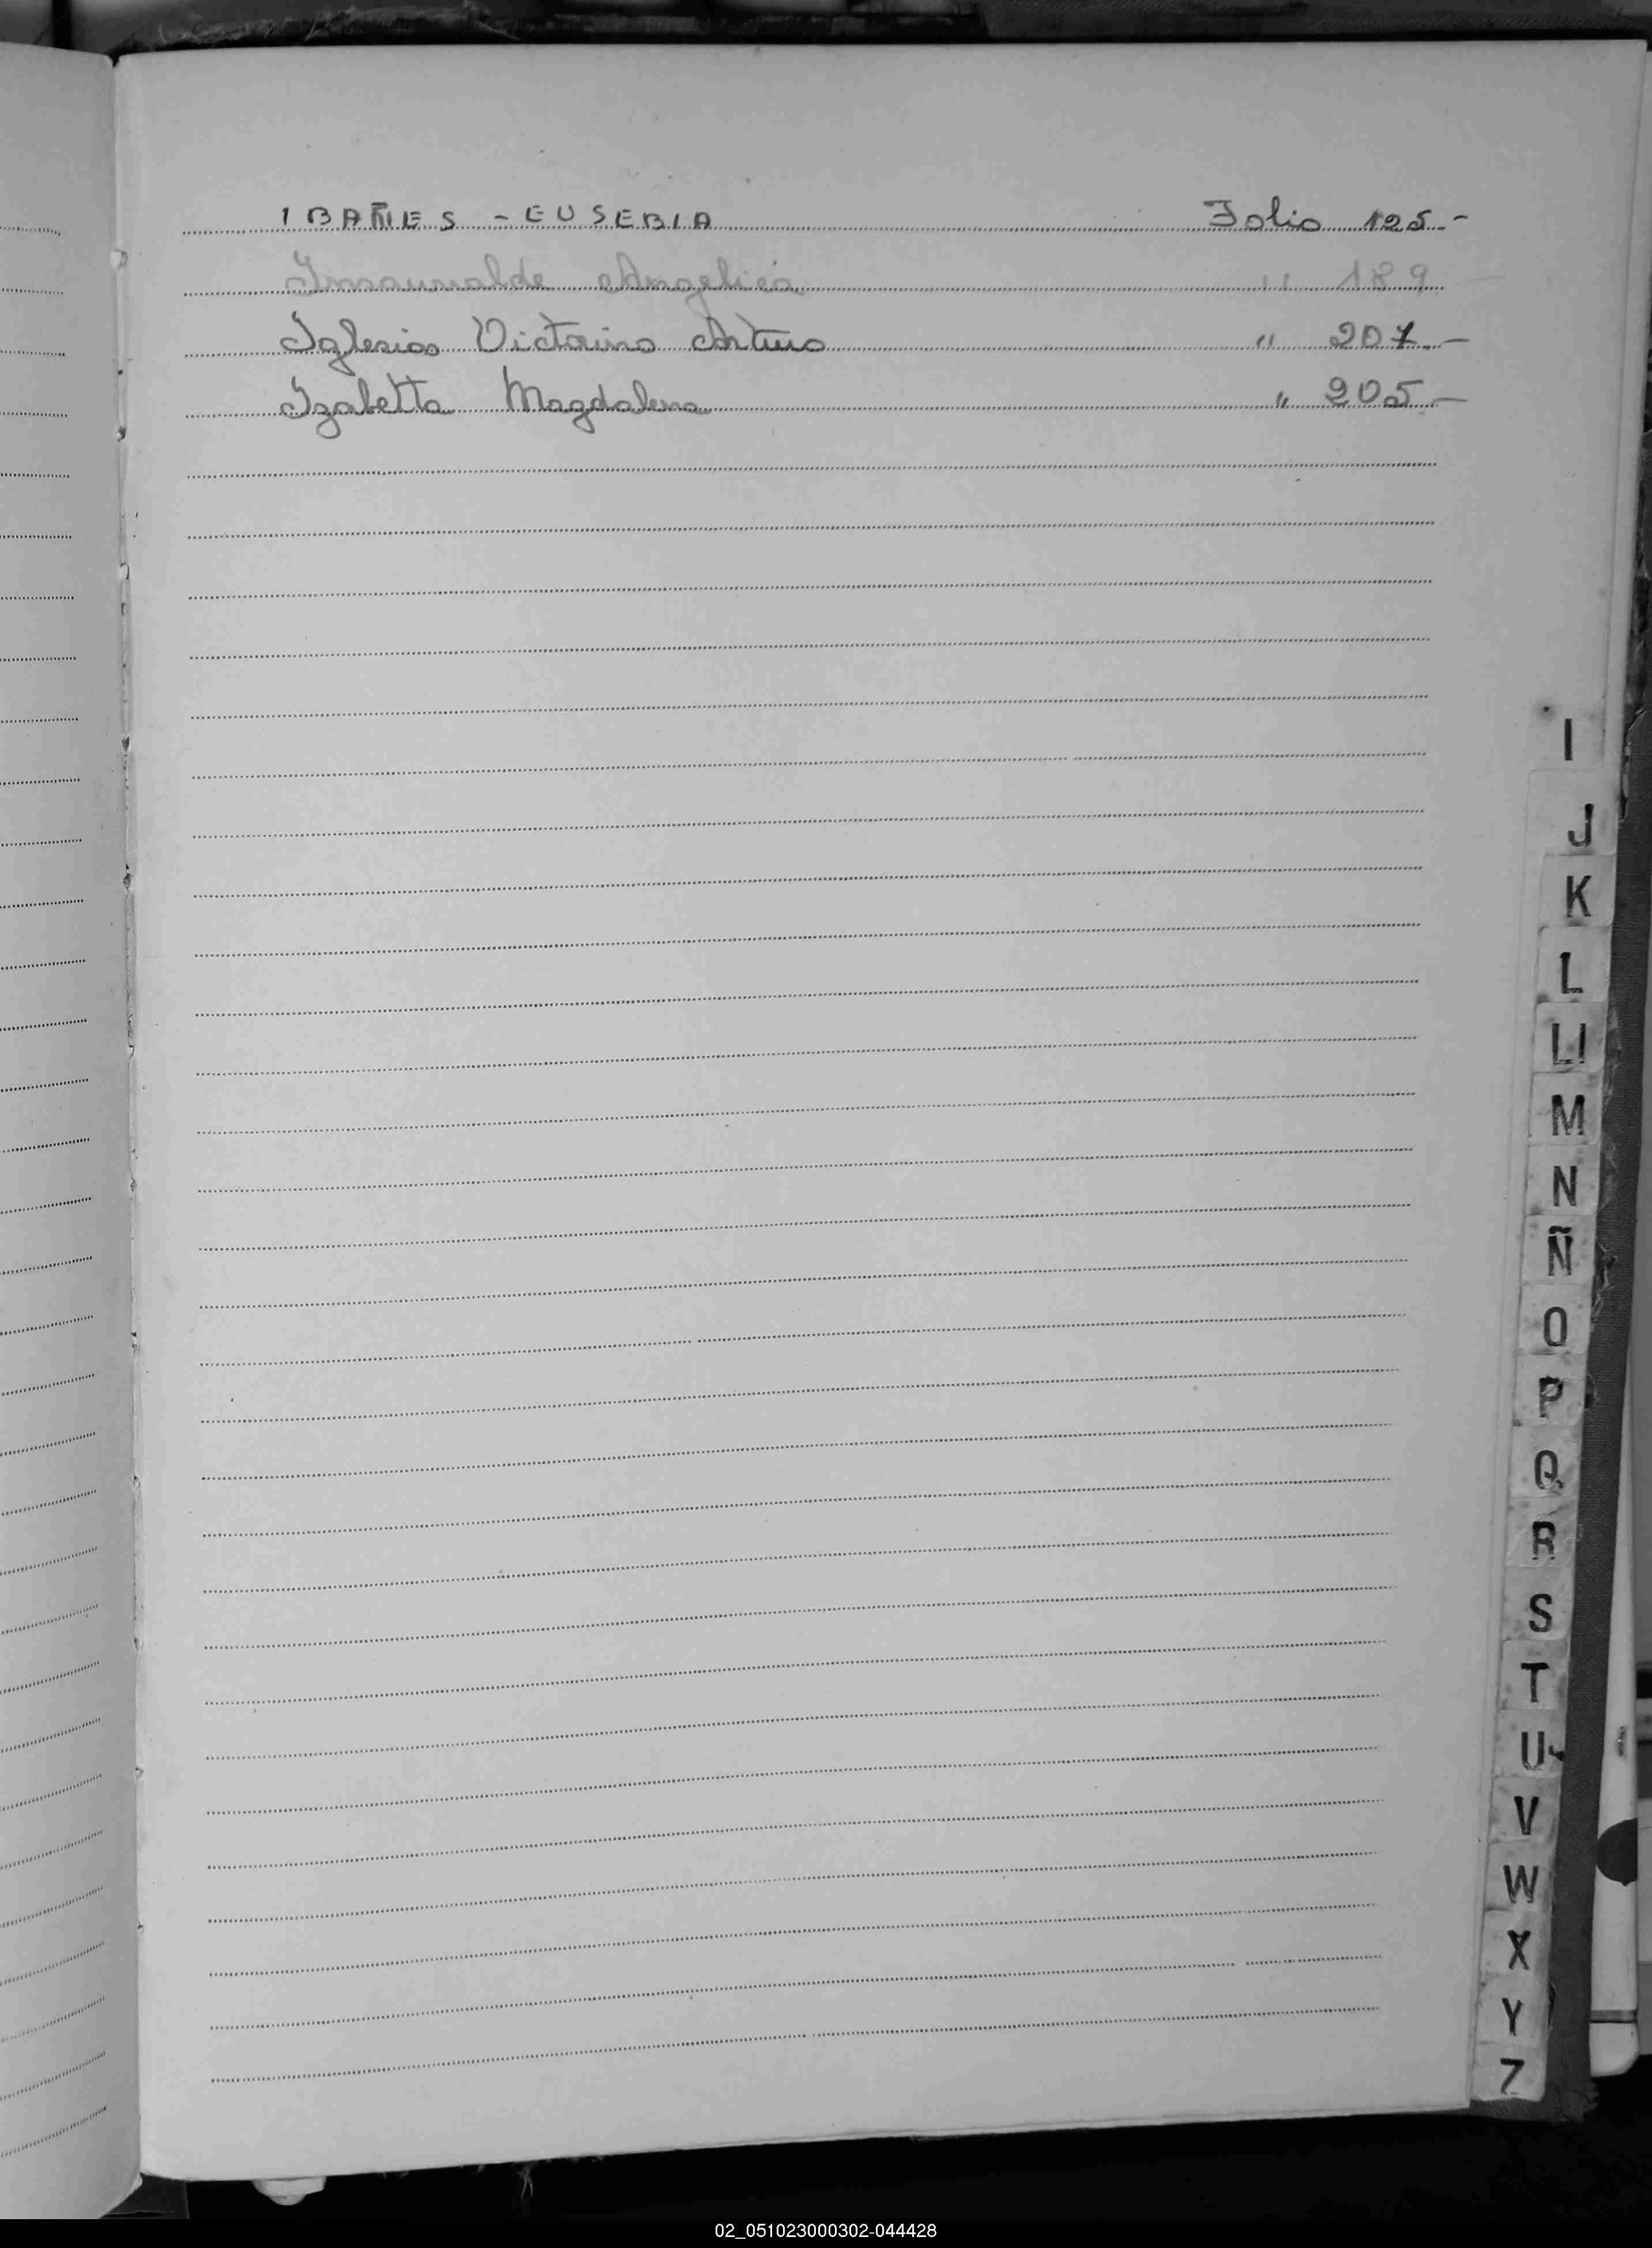 IBAÑES - EUSEBIA Folio 125.-
Insaurralde Angelica " 189 -
Iglesias Victorino Arturo " 207.-
Izabetta Magdalena " 205.-
I
J
K
L
Ll
M
N
Ñ
O
P
Q
R
S
T
U
V
W
X
Y
Z
02_051023000302-044428